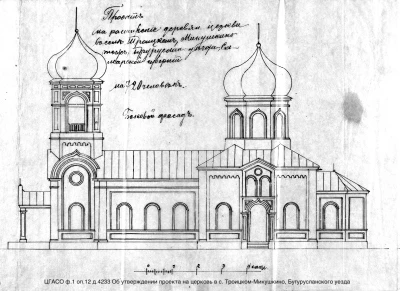 Проектъ
на расширение деревян. церкви
въ селѣ Троицкомъ, Микушкино
тожъ, Бугурусл. уѣзда Са-
марской губернии
на 720 человѣкъ.
Боковой фасадъ.
ЦГАСО ф.1 оп.12 д.4233 Об утверждении проекта на церковь в с. Троицком-Микушкино, Бугурусланского уезда